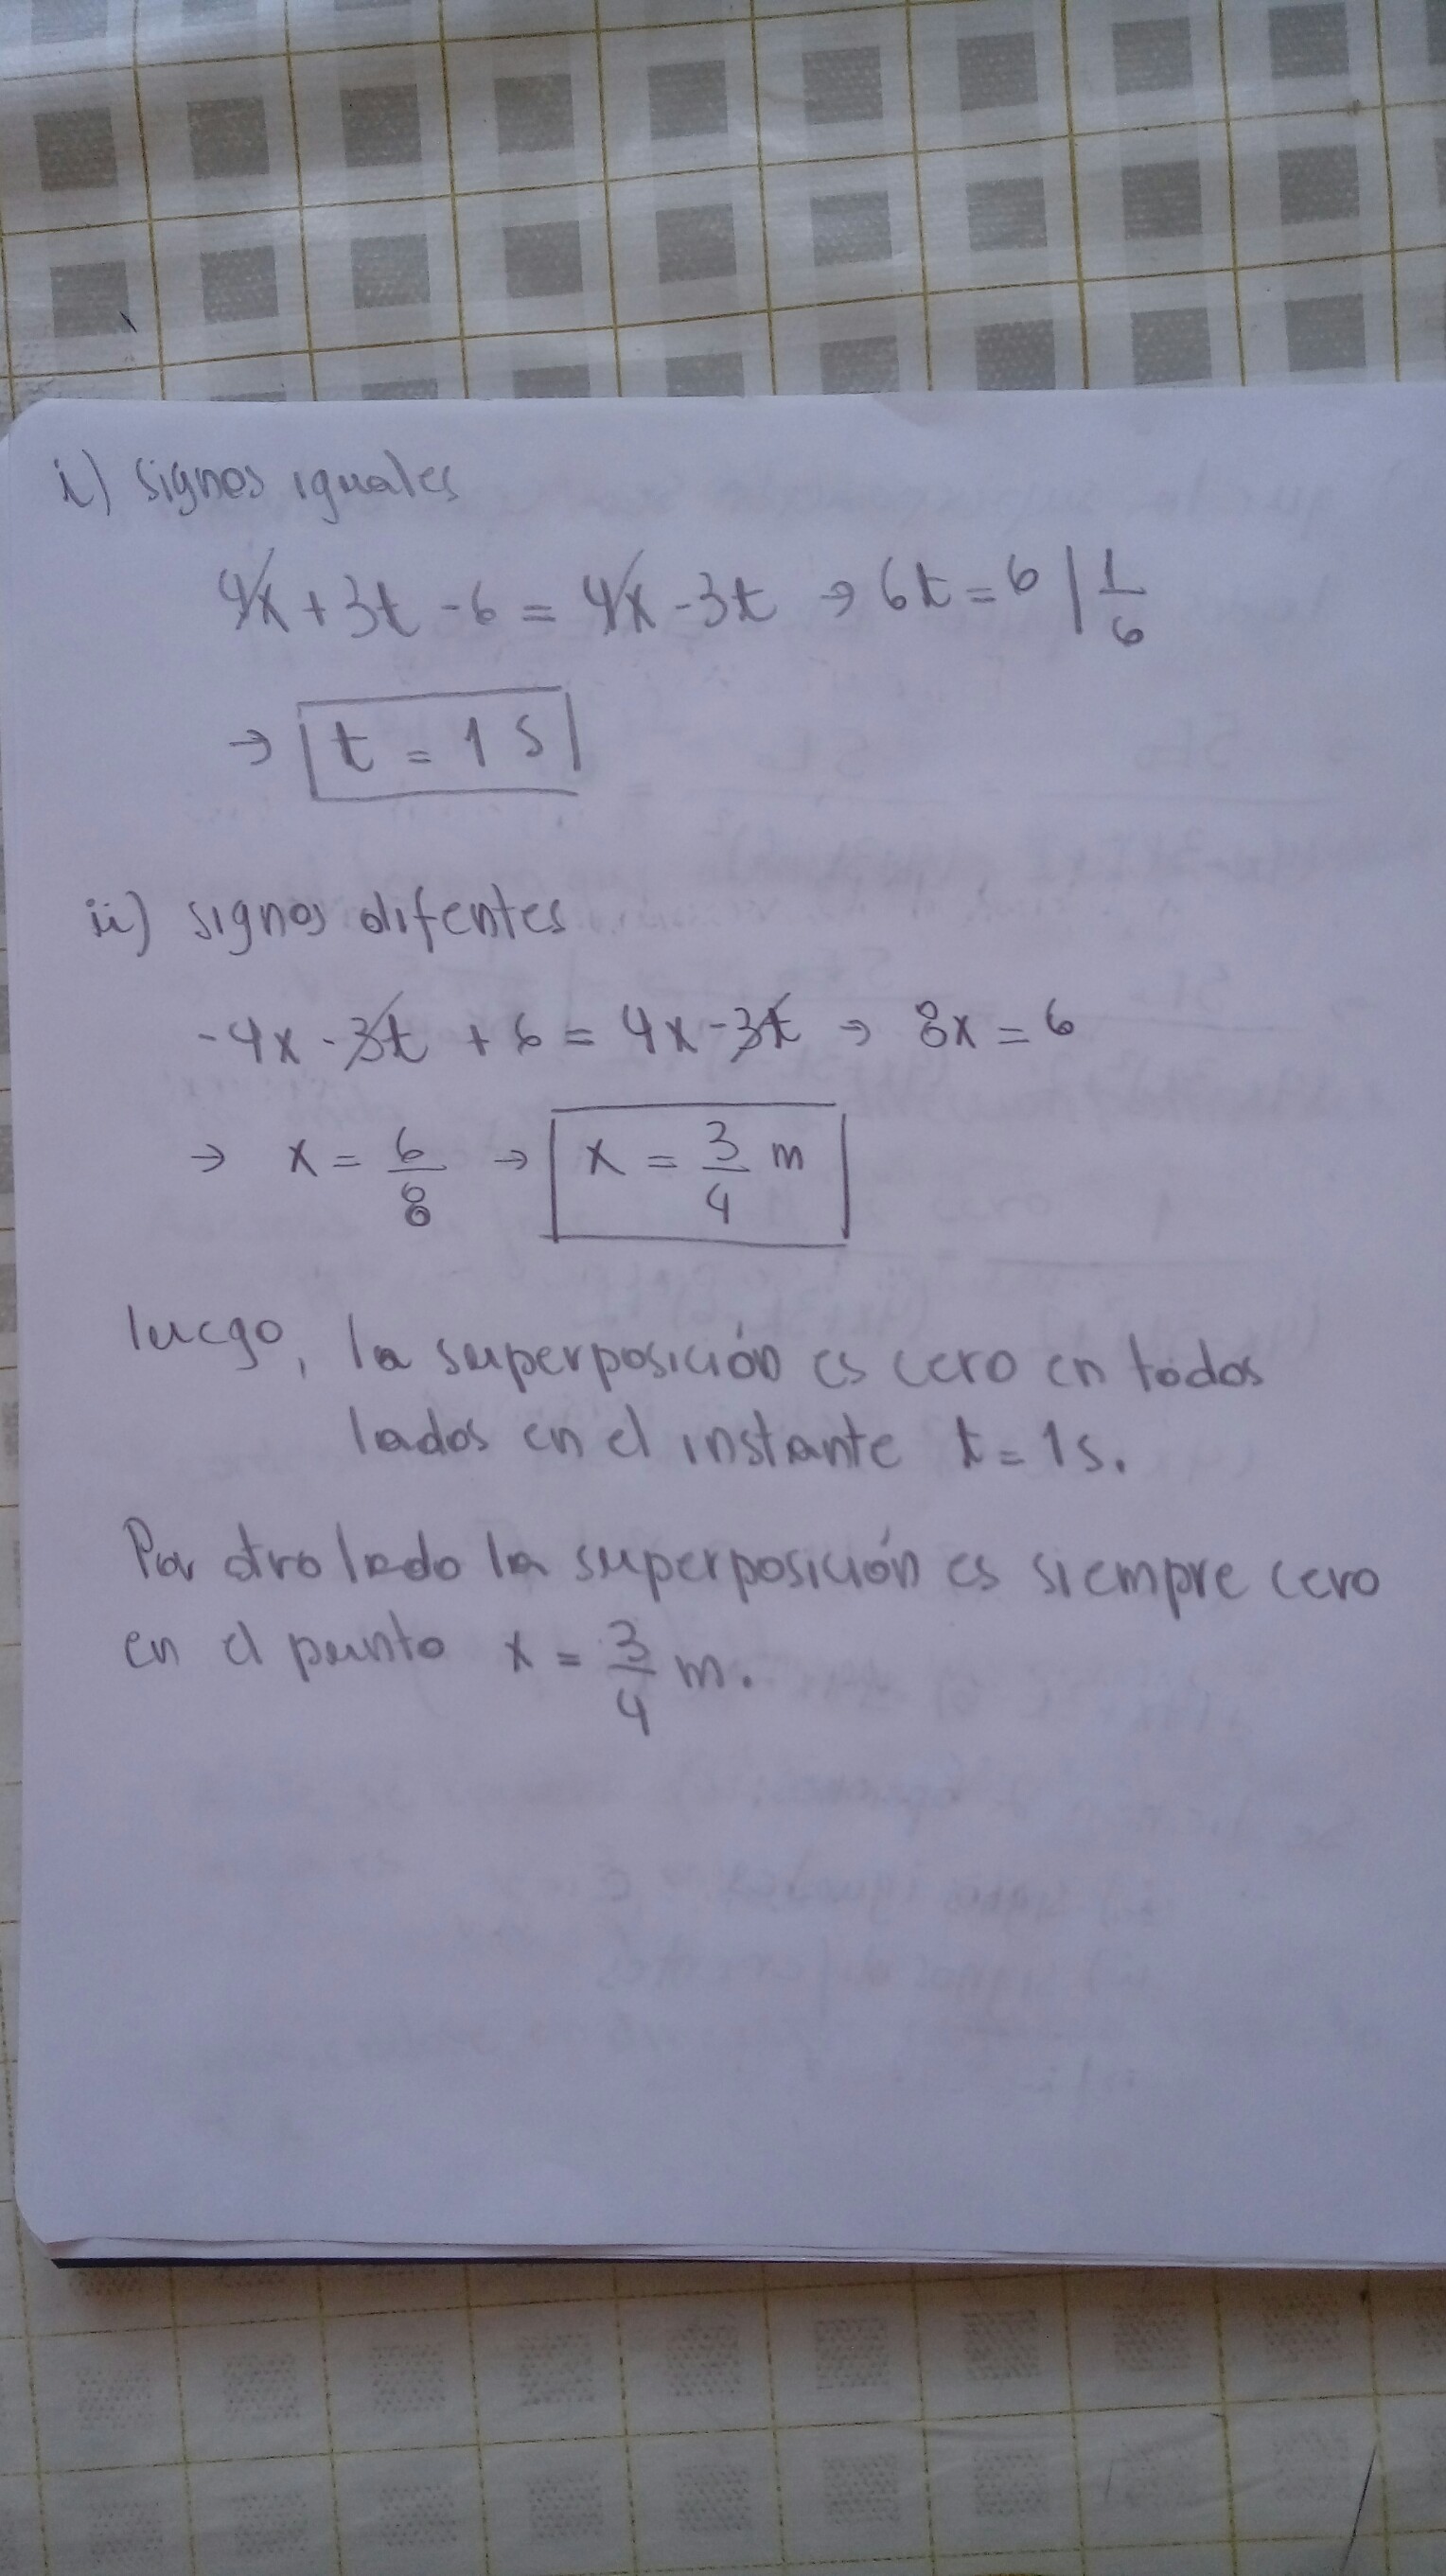 i) signos iguales
4x + 3t - 6 = 4x - 3t → 6t = 6 | 1/6
→ t = 1 s
ii) signos difentes
-4x - 3t + 6 = 4x - 3t → 8x = 6
→ x = 6/8 → x = 3/4 m
luego, la superposición es cero en todos
lados en el instante t = 1s.
Por otro lado la superposición es siempre cero
en el punto x = 3/4 m.